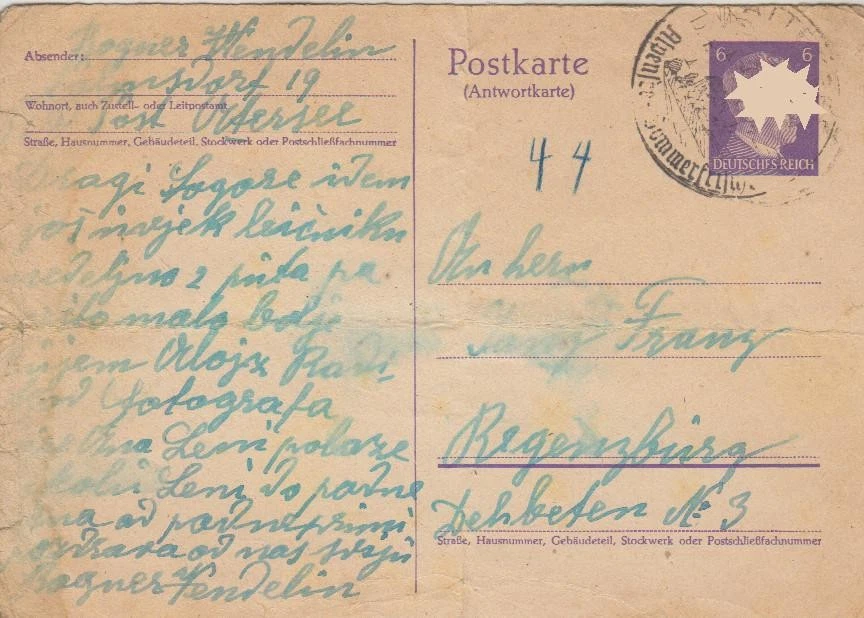 Absender:
Bogner Wendelin
19
Wohnort, auch Zustell- oder Leitpostamt
Post Attersee
Straße, Hausnummer, Gebäudeteil, Stockwerk oder Postschließfachnummer
Dragi Sogore idem
još uvjek leičniku
nedeljno 2 puta pa
malo bolje
Alojz Radi
kod fotografa
Ana Leni polaze
školu Leni do podne
Ana od podne primi
pozdrava od nas sviju
Bogner Wendelin
Postkarte
(Antwortkarte)
6 6
DEUTSCHES REICH
Sommerfrische
44
An hern
Franz
Regenzburg
Dehbeten No 3
Straße, Hausnummer, Gebäudeteil, Stockwerk oder Postschließfachnummer